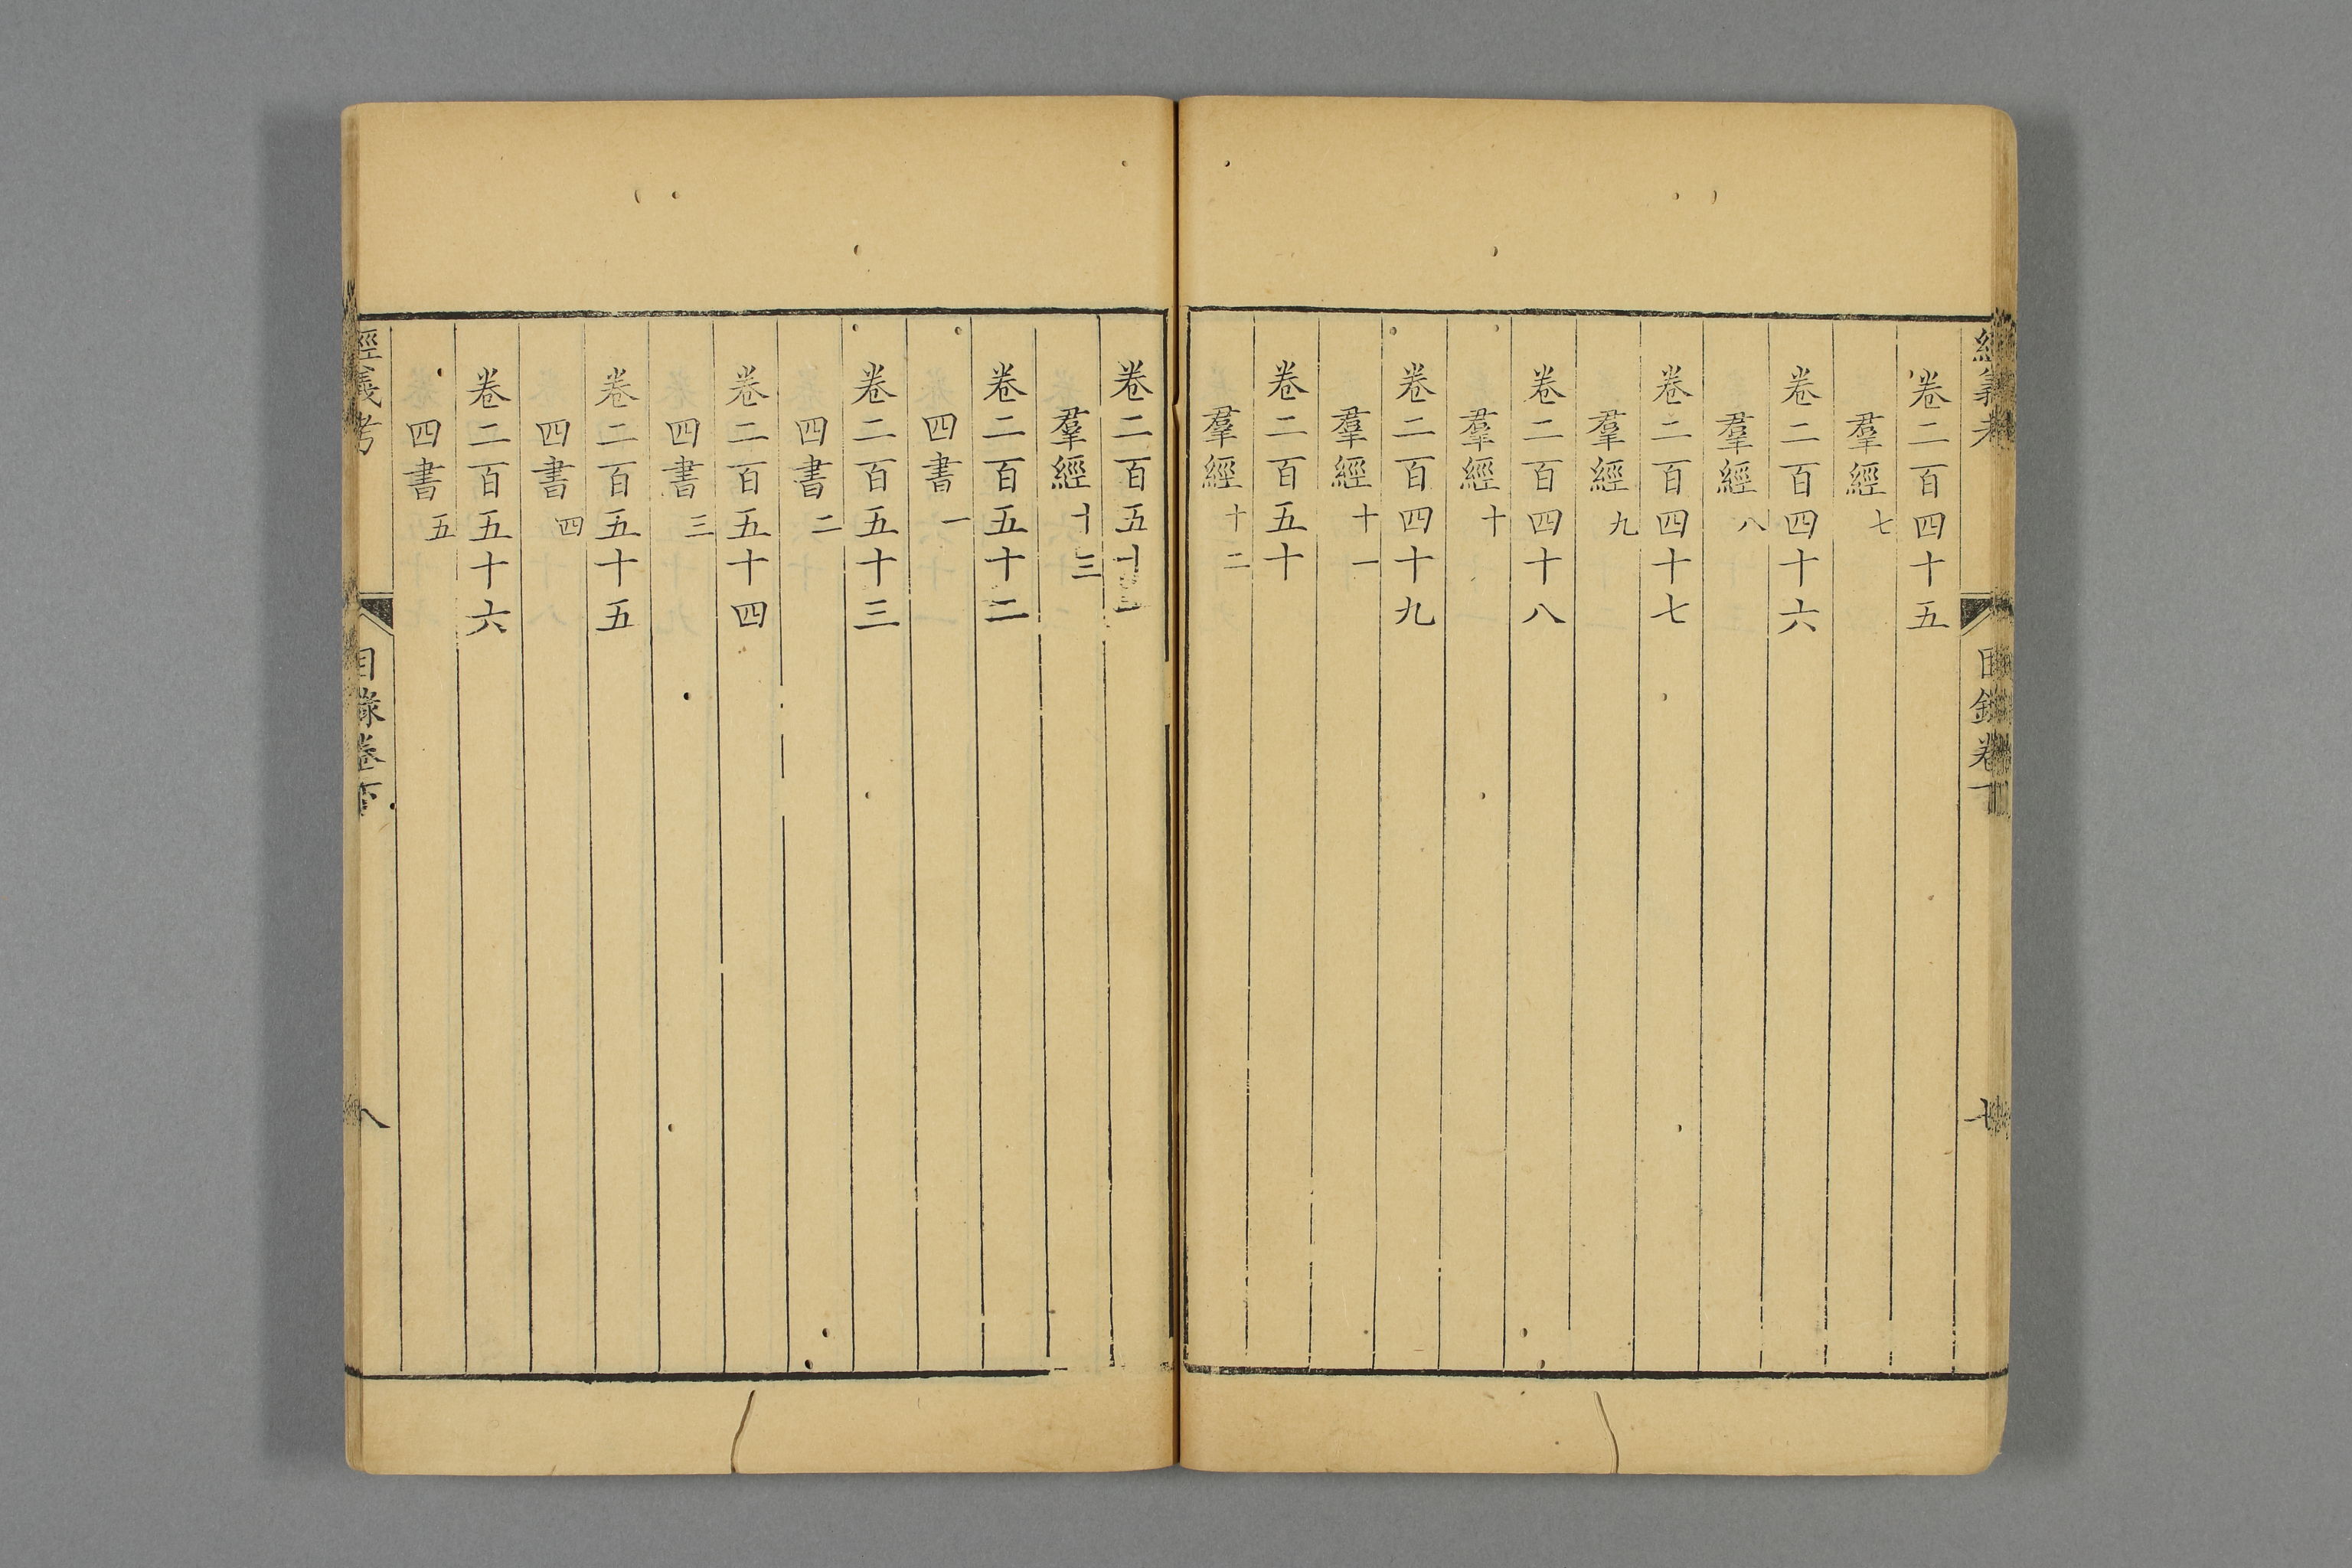 經義考
目錄卷下
七
卷二百四十五
羣經七
卷二百四十六
羣經八
卷二百四十七
羣經九
卷二百四十八
羣經十
卷二百四十九
羣經十一
卷二百五十
羣經十二
卷二百五十一
羣經十三
卷二百五十二
四書一
卷二百五十三
四書二
卷二百五十四
四書三
卷二百五十五
四書四
卷二百五十六
四書五
經義考
目錄卷下
八